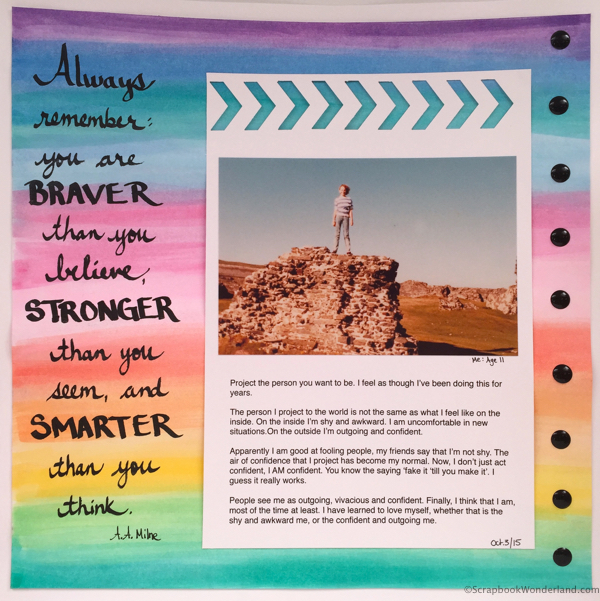 Always
remember:
you are
BRAVER
than you
believe,
STRONGER
than you
seem, and
SMARTER
than you
think.
A.A. Milne
Me: Age 11
Project the person you want to be. I feel as though I've been doing this for
years.
The person I project to the world is not the same as what I feel like on the
inside. On the inside I'm shy and awkward. I am uncomfortable in new
situations.On the outside I'm outgoing and confident.
Apparently I am good at fooling people, my friends say that I'm not shy. The
air of confidence that I project has become my normal. Now, I don't just act
confident, I AM confident. You know the saying 'fake it 'till you make it'. I
guess it really works.
People see me as outgoing, vivacious and confident. Finally, I think that I am,
most of the time at least. I have learned to love myself, whether that is the
shy and awkward me, or the confident and outgoing me.
Oct.3/15
©ScrapbookWonderland.com